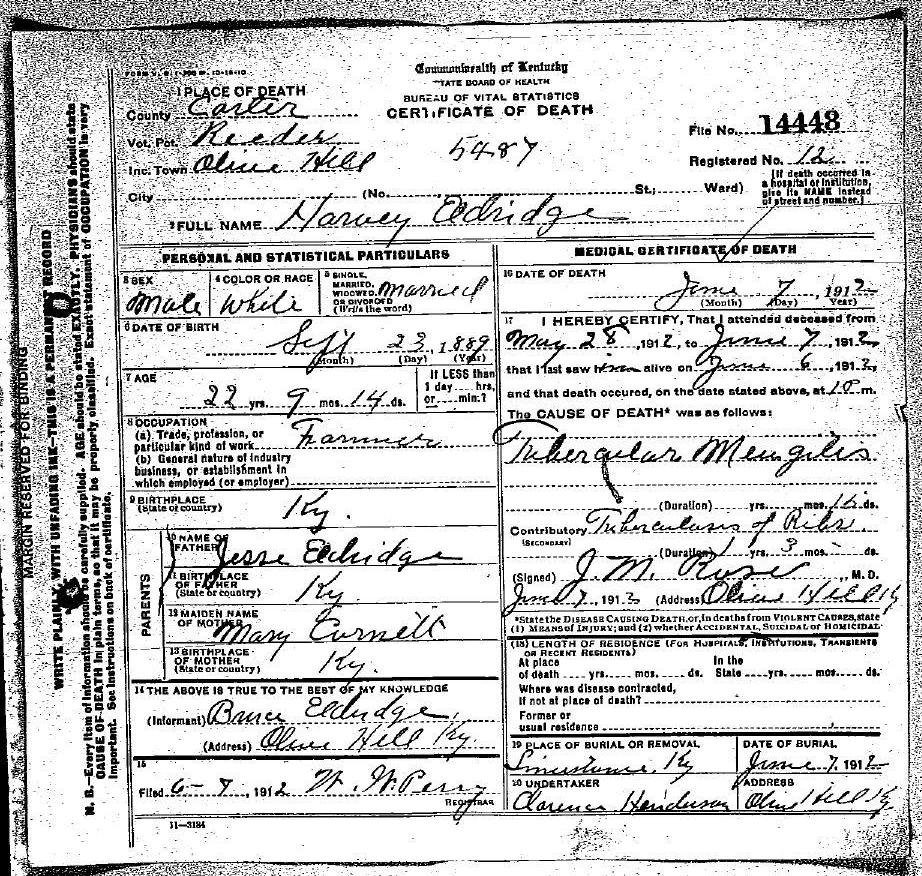 Commonwealth of Kentucky
STATE BOARD OF HEALTH
BUREAU OF VITAL STATISTICS
CERTIFICATE OF DEATH
1 PLACE OF DEATH
County Carter
Vot. Pct. Reeder
Inc. Town Olive Hill
5487
File No. 14448
Registered No. 12
City (No. St.; Ward)
[If death occurred in a hospital or institution, give its NAME instead of street and number.]
2 FULL NAME Harvey Eldridge
PERSONAL AND STATISTICAL PARTICULARS
3 SEX Male
4 COLOR OR RACE White
5 SINGLE, MARRIED, WIDOWED, OR DIVORCED (Write the word) Married
6 DATE OF BIRTH
Sept 23, 1889
(Month) (Day) (Year)
7 AGE
22 yrs. 9 mos. 14 ds.
If LESS than 1 day ... hrs. or ... min.?
8 OCCUPATION
(a) Trade, profession, or particular kind of work Farmer
(b) General nature of industry business, or establishment in which employed (or employer)
9 BIRTHPLACE
(State or country) Ky.
PARENTS
10 NAME OF FATHER Jesse Eldridge
11 BIRTHPLACE OF FATHER (State or country) Ky.
12 MAIDEN NAME OF MOTHER Mary Cornett
13 BIRTHPLACE OF MOTHER (State or country) Ky.
14 THE ABOVE IS TRUE TO THE BEST OF MY KNOWLEDGE
(Informant) Eldridge
(Address) Olive Hill Ky.
15
Filed 6-8, 1912 W. W. Perry
REGISTRAR
11-3184
MEDICAL CERTIFICATE OF DEATH
16 DATE OF DEATH
June 7, 1912
(Month) (Day) (Year)
17 I HEREBY CERTIFY, That I attended deceased from
May 28, 1912, to June 7, 1912
that I last saw him alive on June 6, 1912
and that death occured, on the date stated above, at 10 m.
The CAUSE OF DEATH* was as follows:
Tubercular Mengitis
(Duration) yrs. mos. ds.
Contributory Tuberculosis of Ribs
(SECONDARY)
(Duration) yrs. 3 mos. ds.
(Signed) J. M. Rose, M. D.
June 7, 1912 (Address) Olive Hill Ky
*State the DISEASE CAUSING DEATH, or, in deaths from VIOLENT CAUSES, state
(1) MEANS OF INJURY; and (2) whether ACCIDENTAL, SUICIDAL or HOMICIDAL.
(18) LENGTH OF RESIDENCE (FOR HOSPITALS, INSTITUTIONS, TRANSIENTS OR RECENT RESIDENTS)
At place of death yrs. mos. ds. In the State yrs. mos. ds.
Where was disease contracted, If not at place of death?
Former or usual residence
19 PLACE OF BURIAL OR REMOVAL Limestone, Ky
DATE OF BURIAL June 7, 1912
20 UNDERTAKER Clarence Henderson
ADDRESS Olive Hill Ky
MARGIN RESERVED FOR BINDING
WRITE PLAINLY, WITH UNFADING INK—THIS IS A PERMANENT RECORD
N. B.—Every item of information should be carefully supplied. AGE should be stated EXACTLY. PHYSICIANS should state
CAUSE OF DEATH in plain terms, so that it may be properly classified. Exact statement of OCCUPATION is very
important. See instructions on back of certificate.